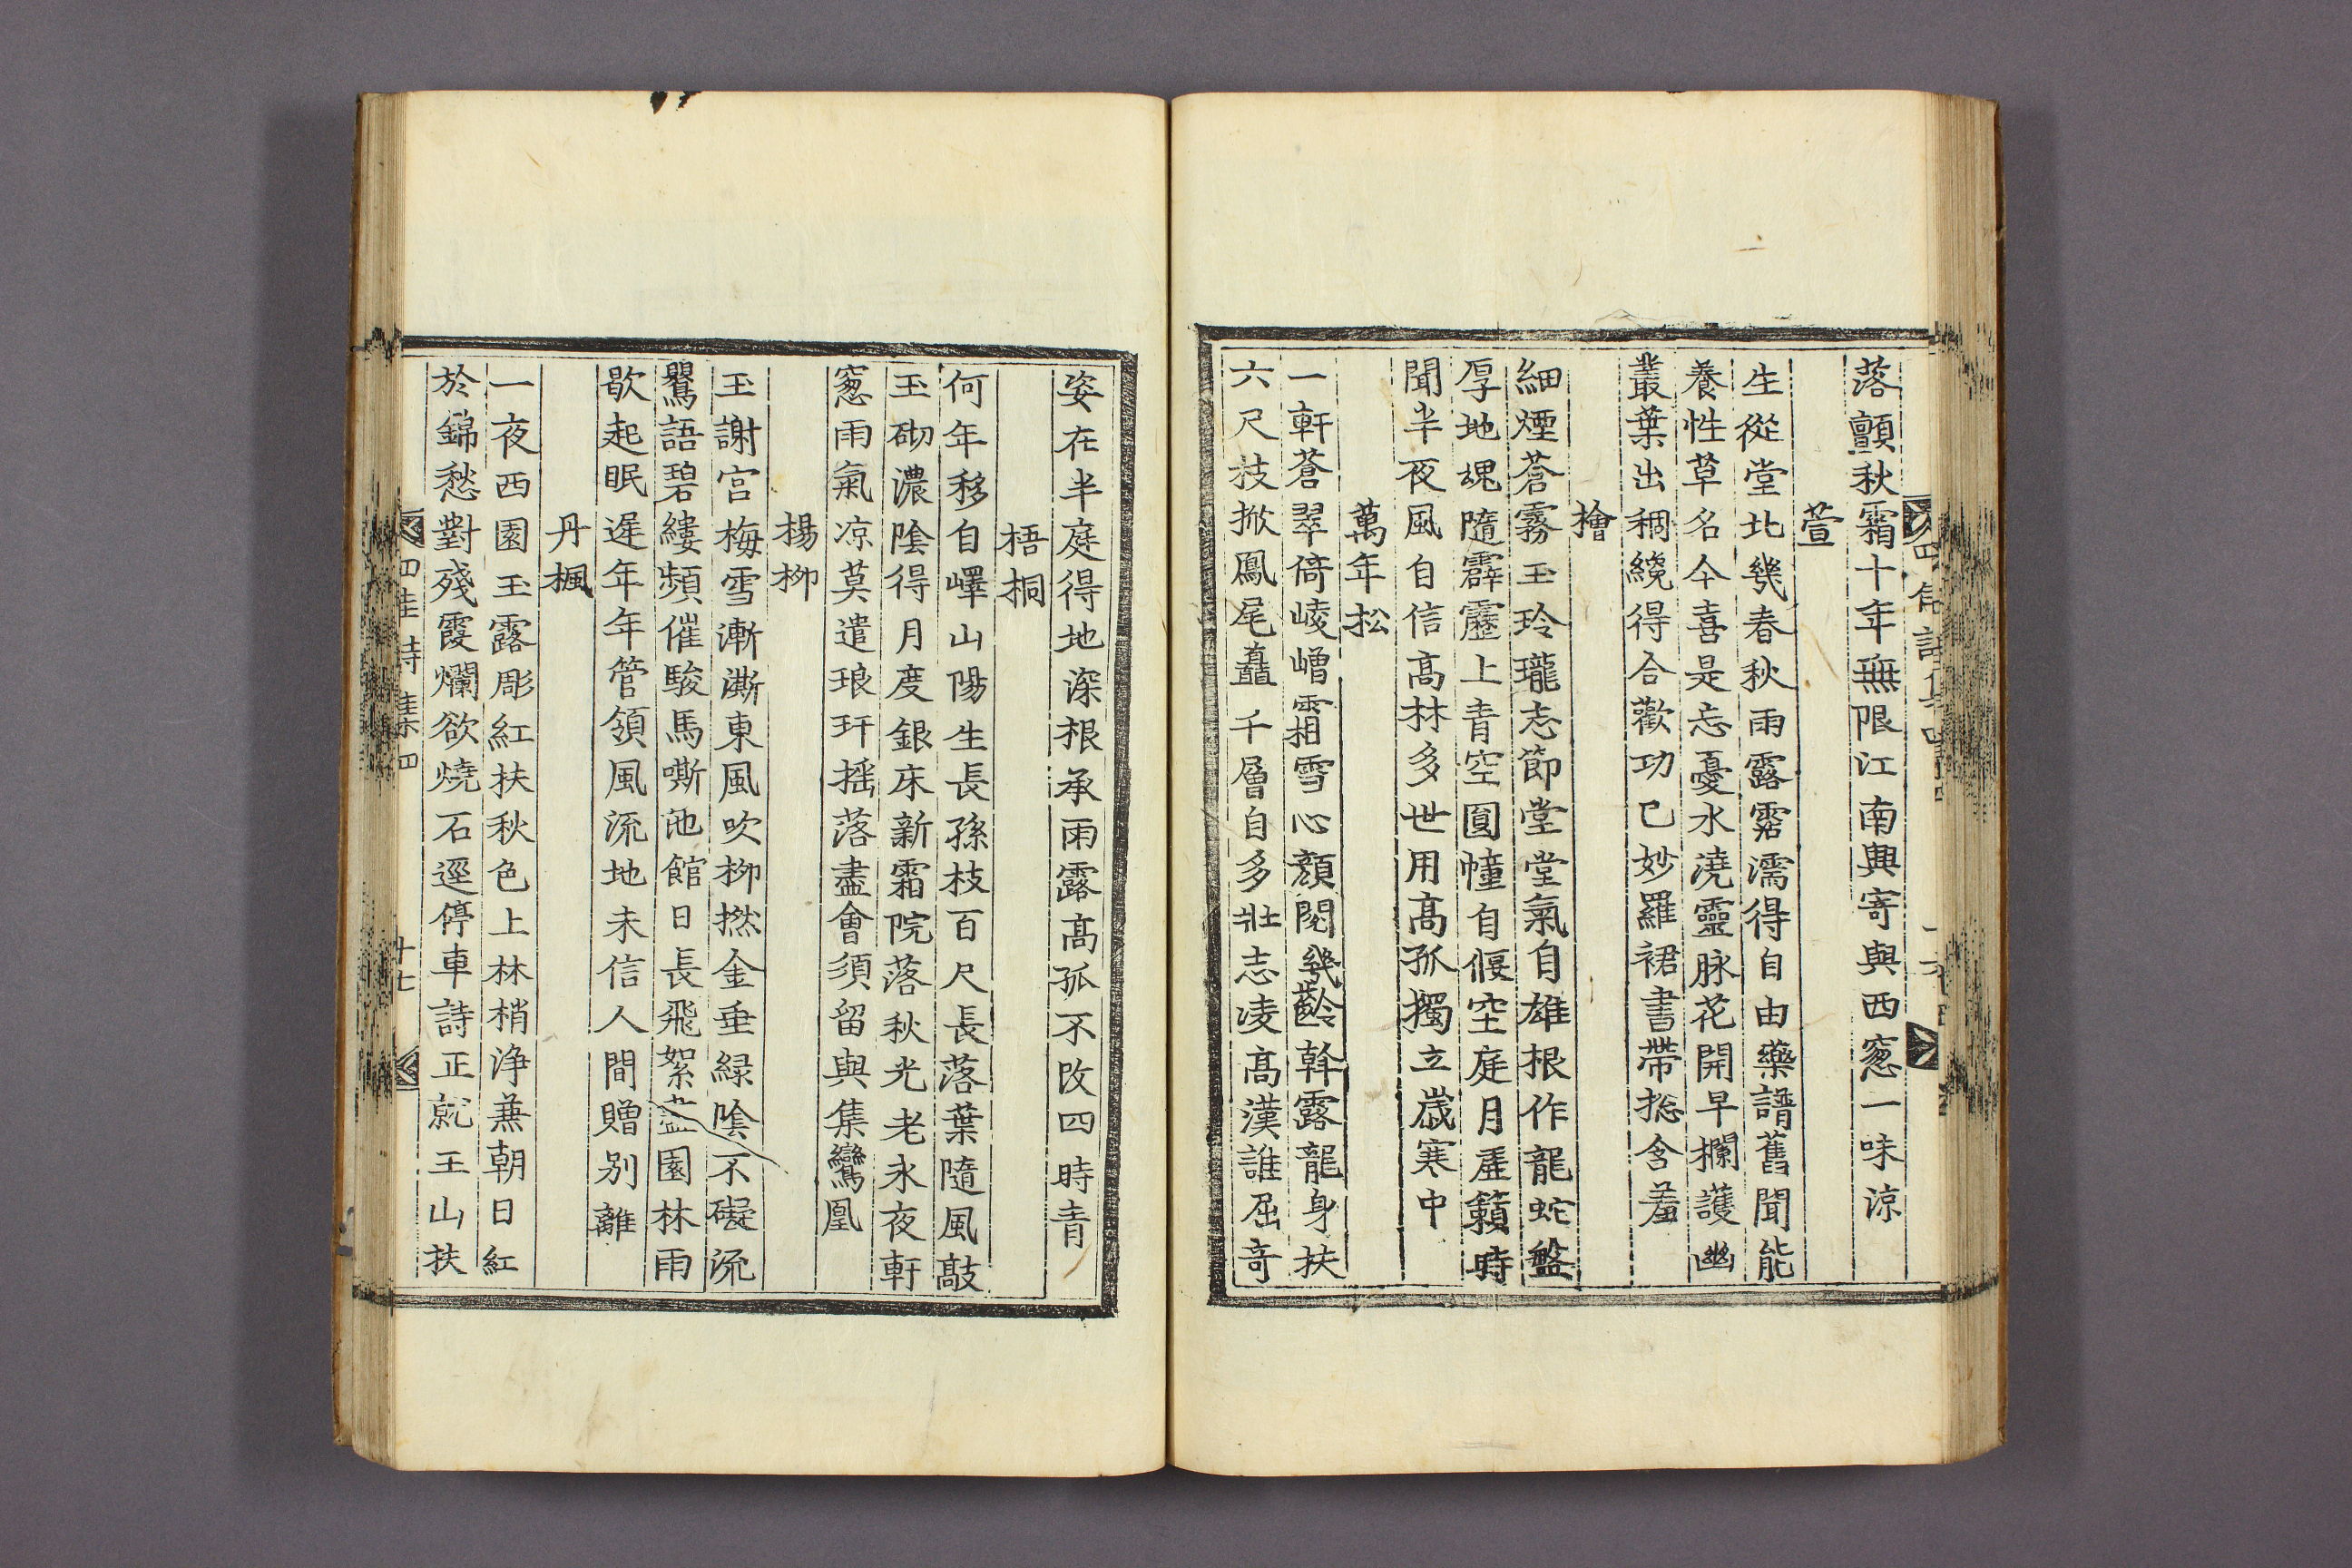 落顫秋霜十年無限江南興寄與西窓一味涼
萱
生從堂北幾春秋雨露霑濡得自由藥譜舊聞能
養性草名今喜是忘憂水澆靈脉花開早欄護幽
叢葉出稠纔得合歡功已妙羅裙書帶捴含羞
檜
細煙蒼霧玉玲瓏志節堂堂氣自雄根作龍蛇盤
厚地魂隨霹靂上青空圓幢自偃空庭月虛籟時
聞半夜風自信高材多世用高孤獨立歲寒中
萬年松
一軒蒼翠倚崚嶒霜雪心顏閱幾齡幹露龍身扶
六尺技掀鳳尾矗千層自多壯志凌高漢誰屈奇
姿在半庭得地深根承雨露高孤不改四時青
梧桐
何年移自嶧山陽生長孫枝百尺長落葉隨風敲
玉砌濃陰得月度銀床新霜院落秋光老永夜軒
窓雨氣凉莫遣琅玕搖落盡會須留與集鸞凰
楊柳
玉謝宮梅雪漸澌東風吹柳撚金垂緑陰不礙流
鸎語碧縷頻催駿馬嘶池館日長飛絮盡園林雨
歇起眠遲年年管領風流地未信人間贈別離
丹楓
一夜西園玉露彫紅扶秋色上林梢淨蕪朝日紅
於錦愁對殘霞爛欲燒石逕停車詩正就玉山扶
四佳詩集四
十七